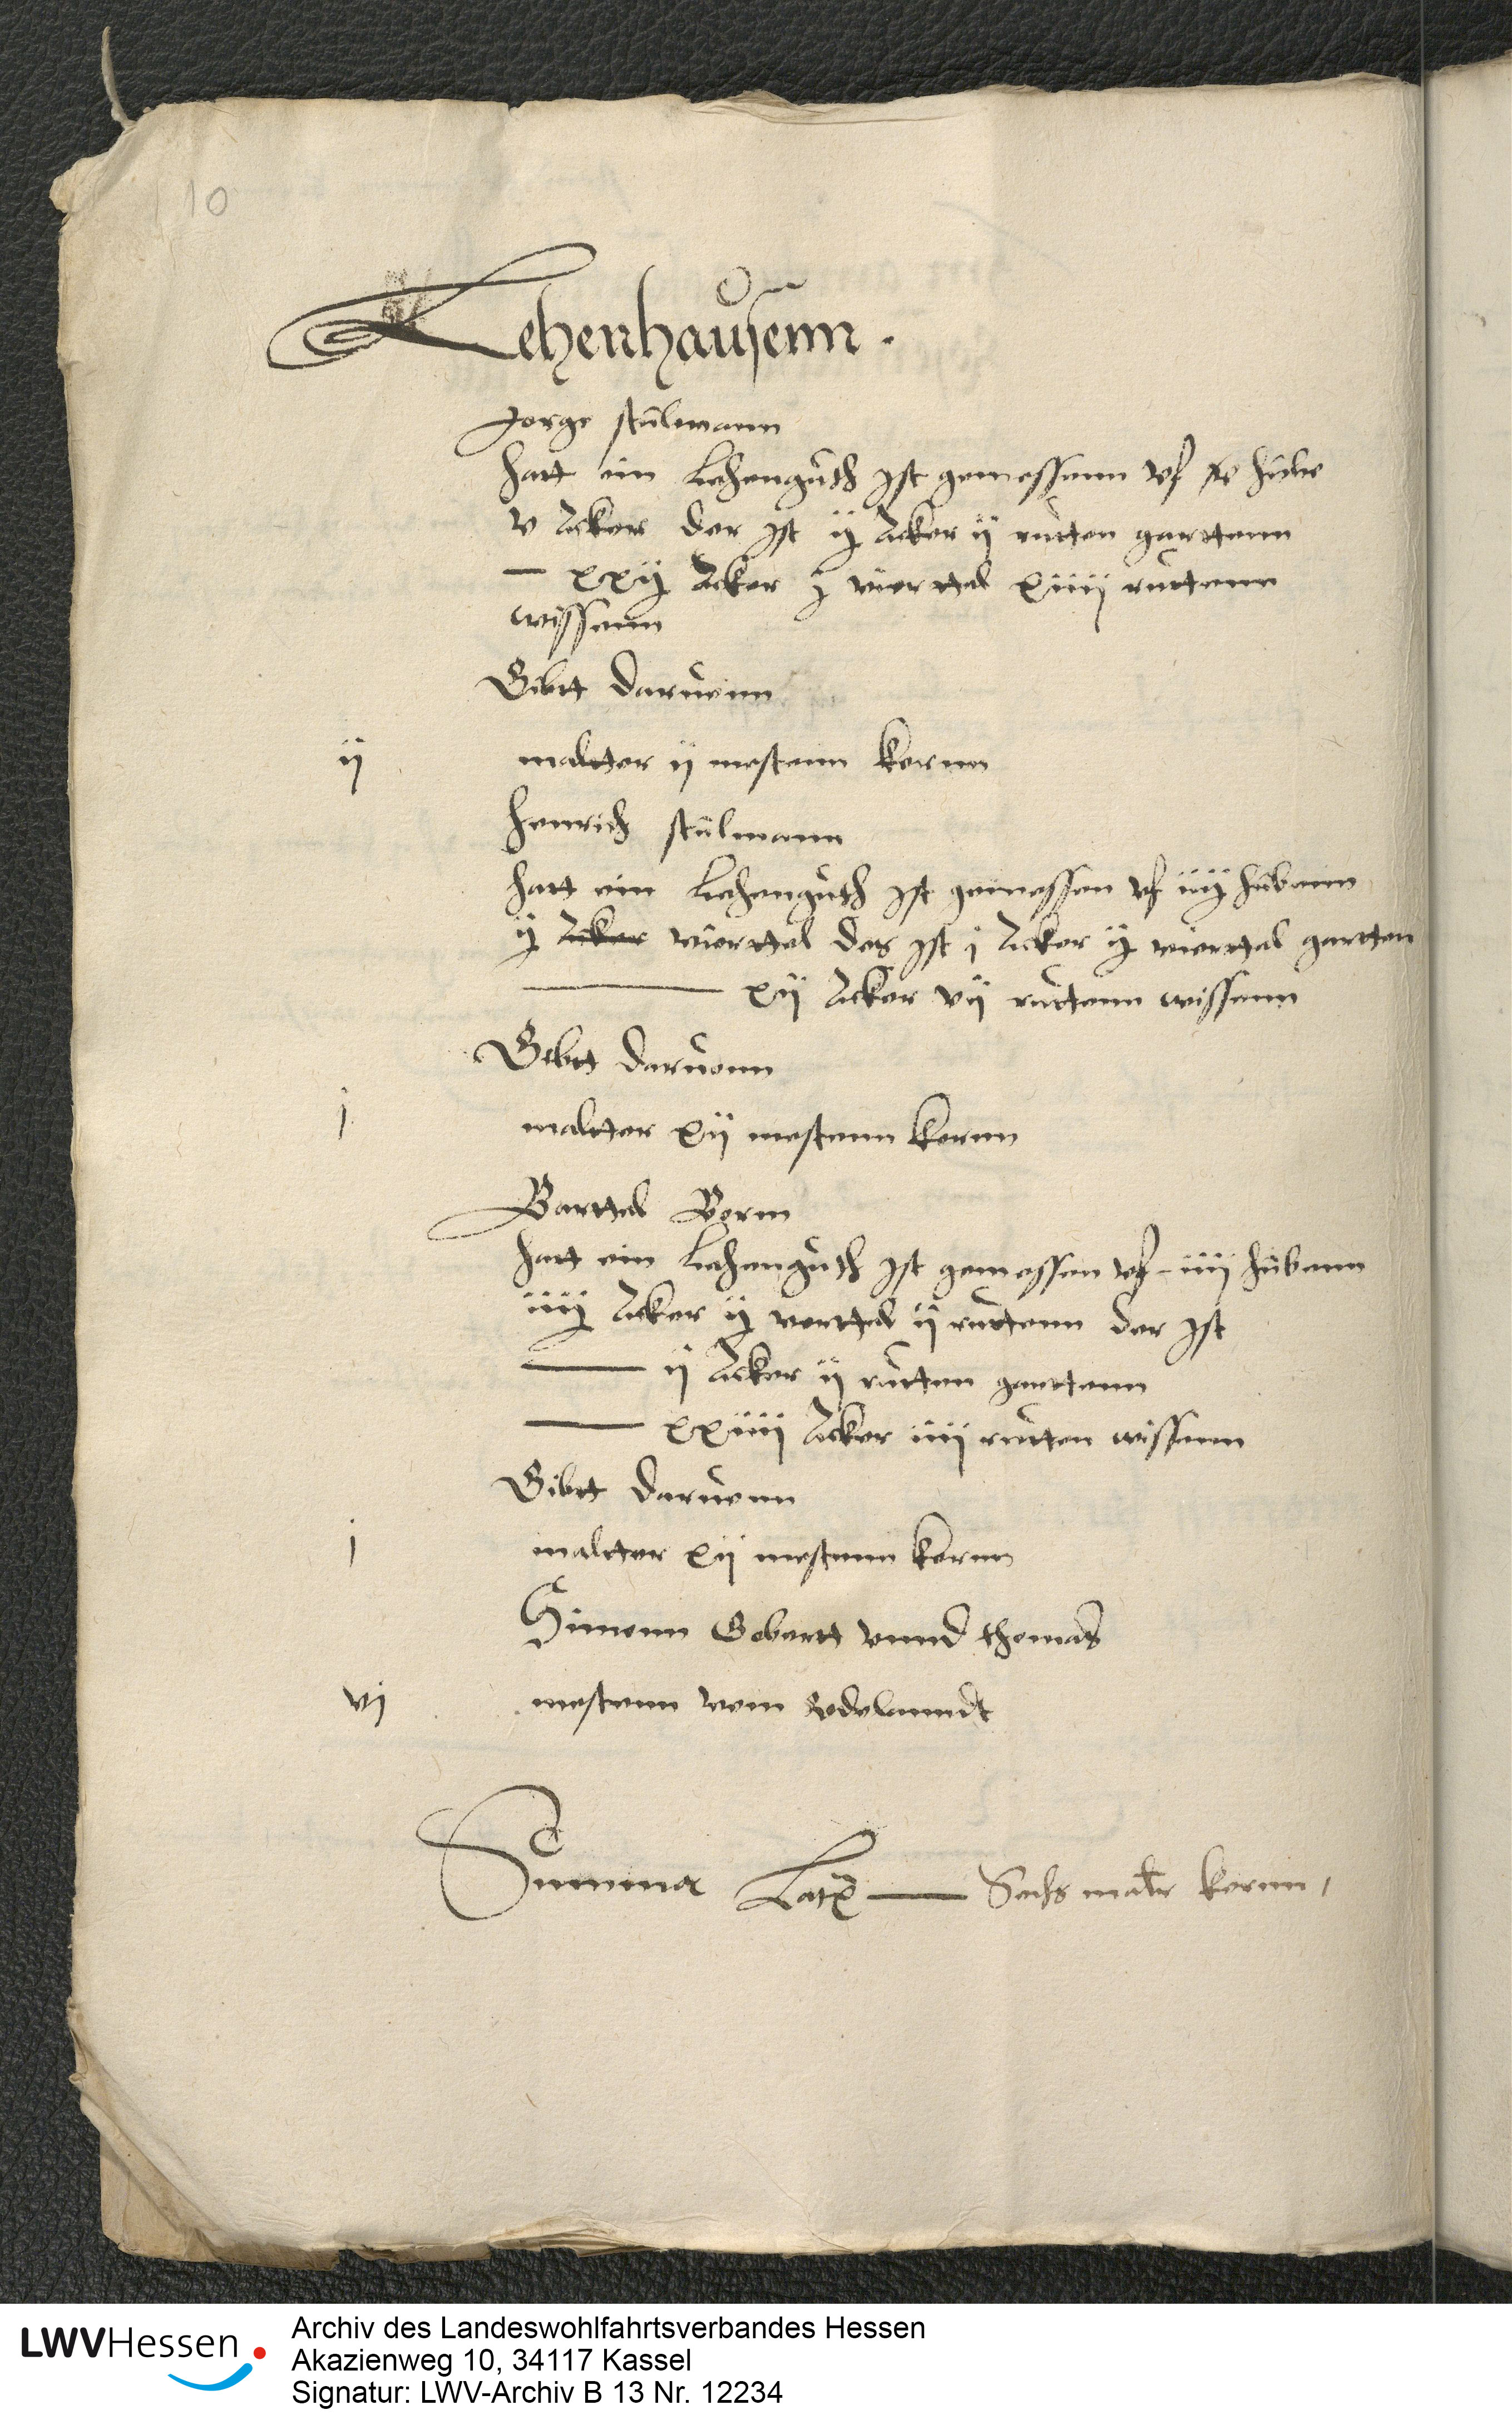 10
Lehenhausenn.
Jorge stulmann
hatt ein Lehenguth ist gemessenn vf hube
v Acker der ist ij Acker ij rutten garttenn
— xxij Acker j viertel xiiij ruttenn
wissenn
Gibtt daruonn
ij maltter ij mestenn kornn
Henrich stulmann
hatt ein Lehenguth ist gemessen vf iiij hubenn
ij Acker viertel des ist j Acker ij viertel gartten
— xij Acker vij ruttenn wissenn
Gibtt daruonn
j maltter xij mestenn kornn
Barttel Born
hatt ein Lehenguth ist gemessen vf - iiij hubenn
iiij Acker ij verttel ij ruttenn der ist
— ij Acker ij rutten garttenn
— xxiiij Acker iiij rutten wissenn
Gibtt daruonn
j maltter xij mestenn kornn
Simonn Gobartt vnnd thomas
vj mestenn vom Rodelanndt
Summa Lat(er)is — Sechs maltr kornn,
LWVHessen
Archiv des Landeswohlfahrtsverbandes Hessen
Akazienweg 10, 34117 Kassel
Signatur: LWV-Archiv B 13 Nr. 12234